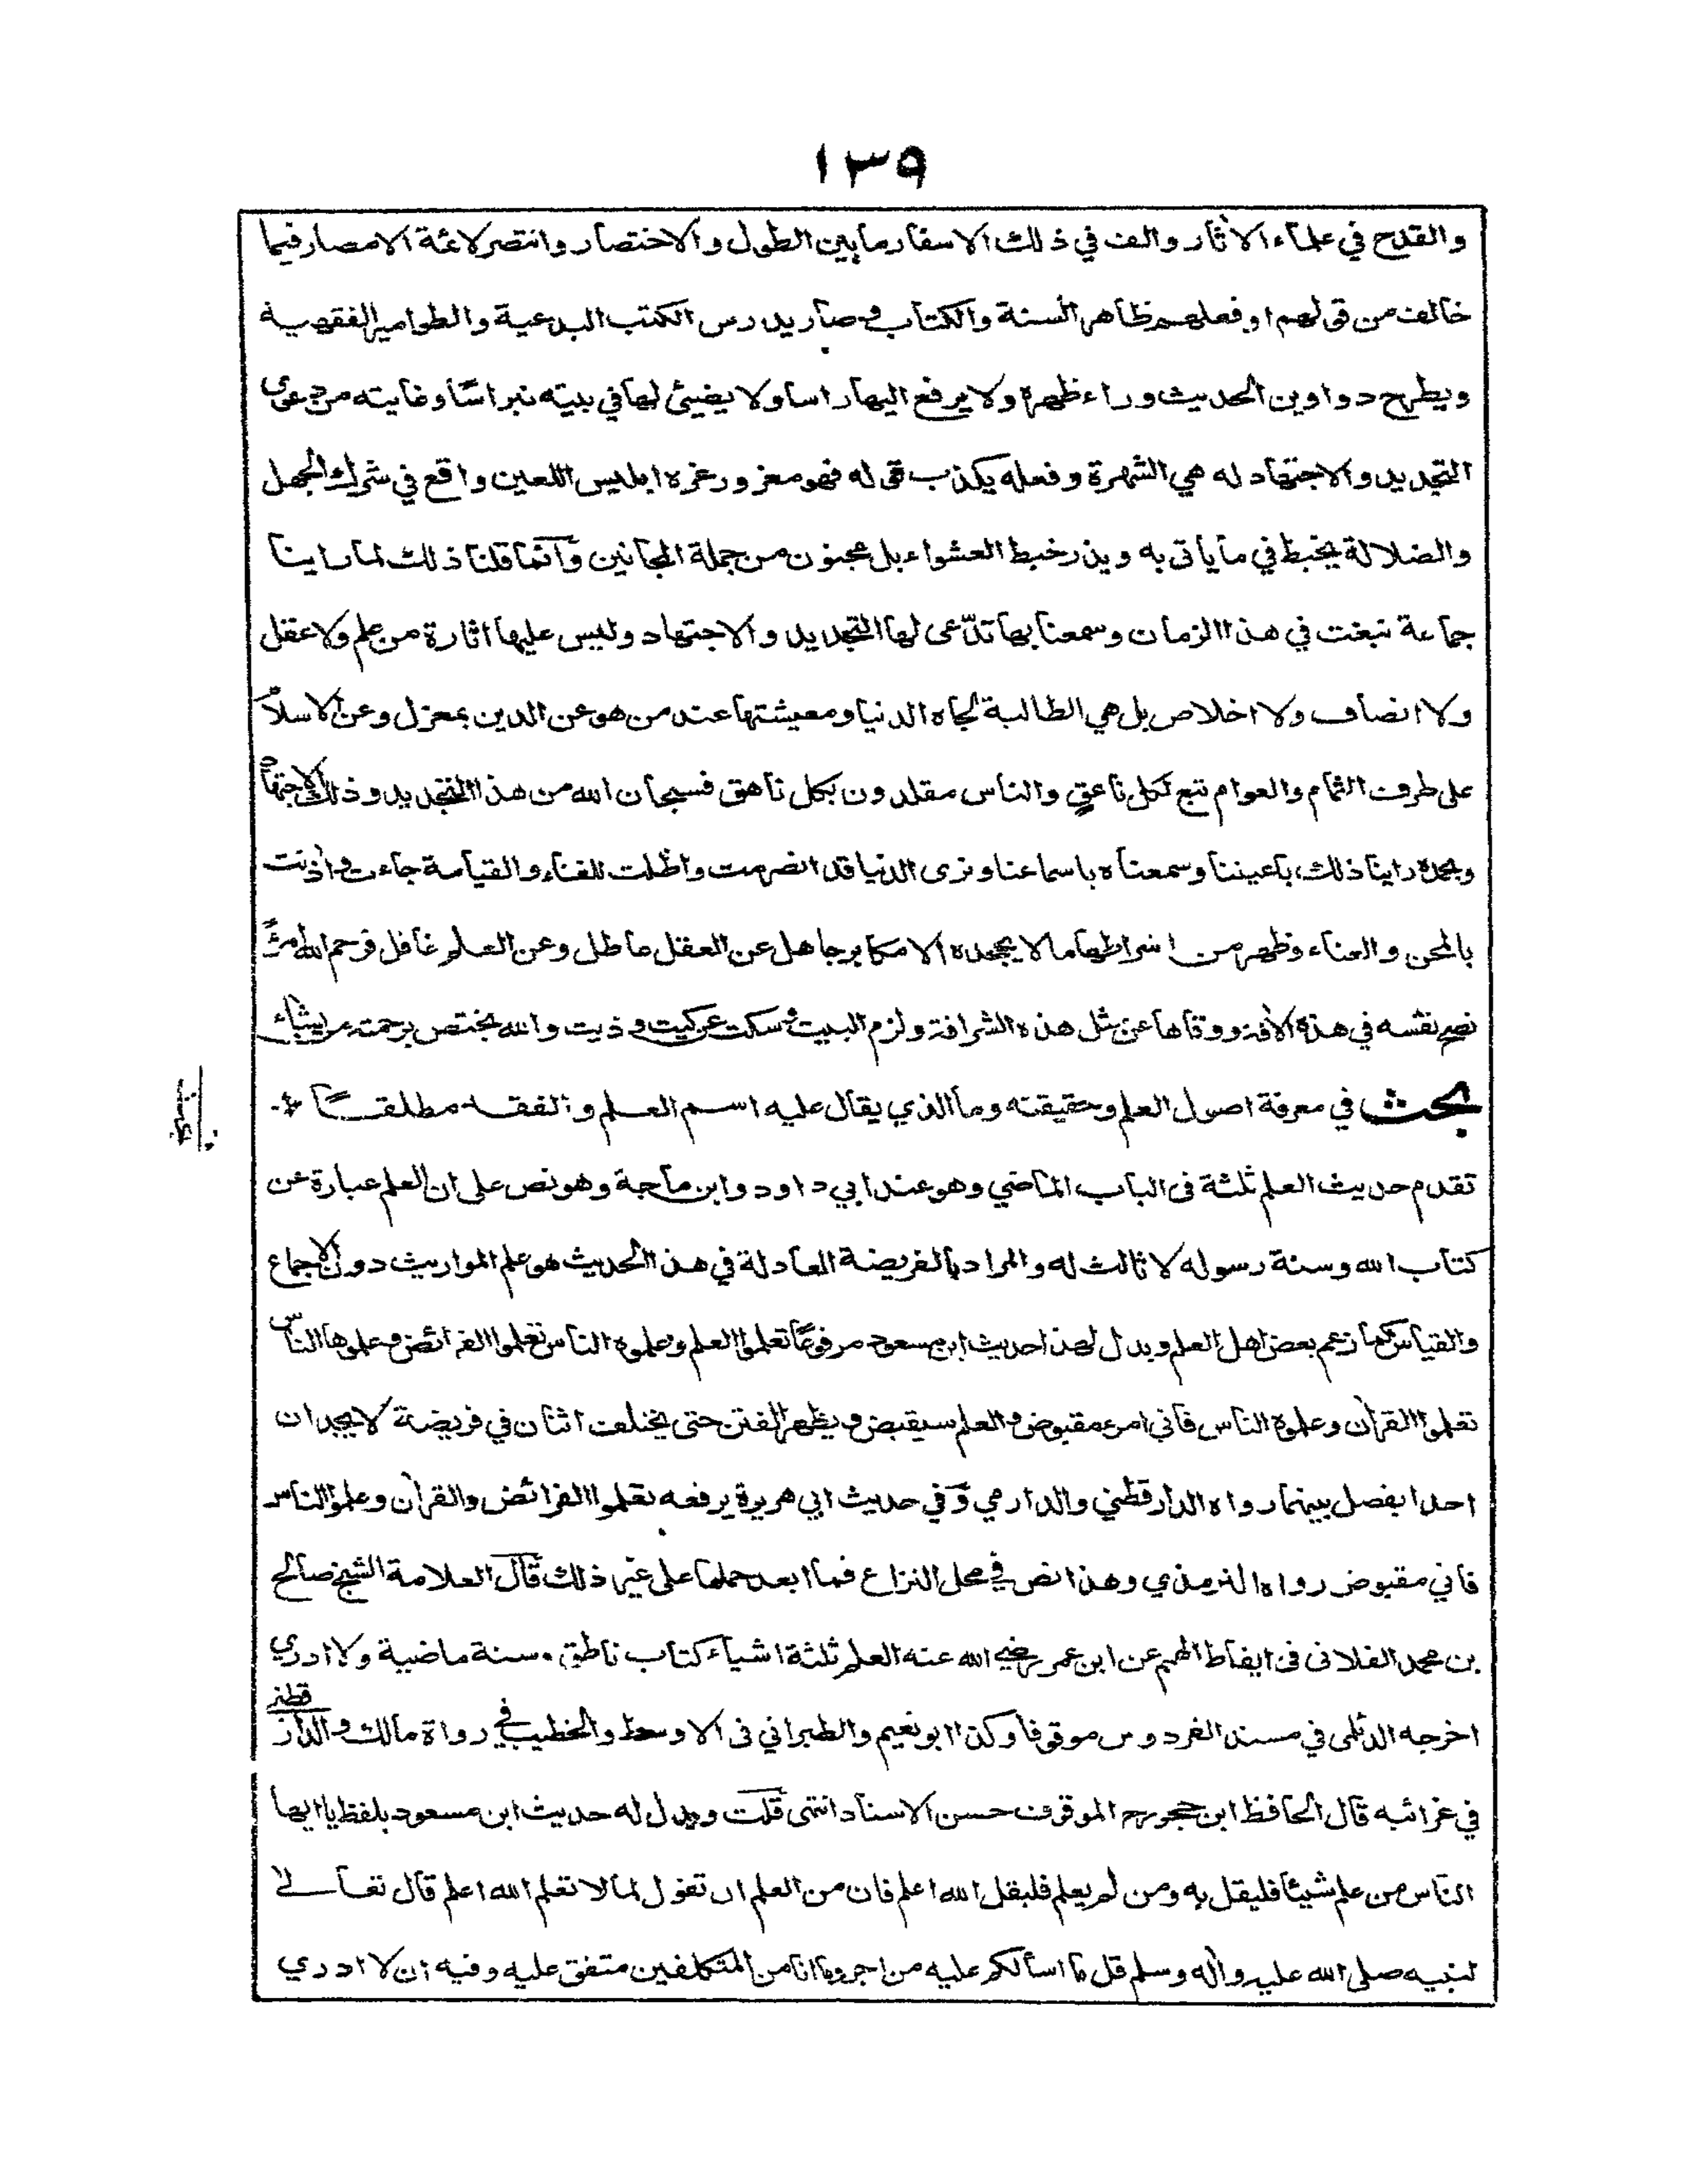 ١٣٩
والقدح في علماء الاٰثار والف في ذلك الاسفار ما بين الطول والاختصار وانتصر لائمة الامصار فيما
خالف من قولهم او فعلهم ظاهر السنة والكتاب وصار يدرس الكتب البدعية والطوامير الفقهية
ويطرح دواوين الحديث وراء ظهره ولا يرفع اليها راسا ولا يضيئ لها في بيته نبراسًا وغايته من دعوى
التجديد والاجتهاد له هي الشهرة وفعله يكذب قوله فهو مغرور غره ابليس اللعين واقع في شرك الجهل
والضلالة يخبط في ما ياتى به ويذر خبط العشواء بل مجنون من جملة المجانين وانما قلنا ذلك لما راينا
جماعة نبغت في هذا الزمان وسمعنا بها تدّعى لها التجديد والاجتهاد وليس عليها اثارة من علم ولا عقل
ولا انصاف ولا اخلاص بل هي الطالبة لجاه الدنيا ومعيشتها عند من هو عن الدين بمعزل وعن الاسلام
على طرف الثمام والعوام تبع لكل ناعق والناس مقلدون بكل ناهق فسبحان الله من هذا التجديد وذلك الاجتهاد
وبحمده راينا ذلك باعيننا وسمعناه باسماعنا ونرى الدنيا قد انصرمت واظلت للفناء والقيامة جاءت واذنت
بالمحن والعناء وظهر من اشراطها ما لا يجحده الا مكابر جاهل عن العقل عاطل وعن العلم غافل فرحم الله امرءً
نصح نفسه في هذه الاٰفة ووقاها عن مثل هذه الشرافة ولزم البيت وسكت عن كيت وذيت والله يختص برحمته من يشاء
بحث في معرفة اصول العلم وحقيقته وما الذي يقال عليه اسم العلم والفقه مطلقًا
تقدم حديث العلم ثلثة فى الباب الماضي وهو عند ابي داود وابن ماجة وهو نص على ان العلم عبارة عن
كتاب الله وسنة رسوله لا ثالث له والمراد بالفريضة العادلة في هذا الحديث هو علم المواريث دون الاجماع
والقياس كما زعم بعض اهل العلم ويدل لهذا حديث ابن مسعود مرفوعًا تعلموا العلم وعلموه الناس تعلموا الفرائض وعلموها الناس
تعلموا القراٰن وعلموه الناس فاني امرء مقبوض والعلم سيقبض ويظهر الفتن حتى يختلف اثنان في فريضة لا يجدان
احدا يفصل بينهما رواه الدارقطني والدارمي وفي حديث ابي هريرة يرفعه تعلموا الفرائض والقراٰن وعلموا الناس
فاني مقبوض رواه الترمذي وهذا نص في محل النزاع فما ابعد حملها على غير ذلك قال العلامة الشيخ صالح
بن محمد الفلانى فى ايقاظ الهمم عن ابن عمر رضي الله عنه العلم ثلثة اشياء كتاب ناطق، سنة ماضية ولا ادري
اخرجه الديلمى في مسند الفردوس موقوفا وكذا ابو نعيم والطبراني فى الاوسط والخطيب في رواة مالك والدارقطني
في غرائبه قال الحافظ ابن حجر رح الموقوف حسن الاسناد انتهى قلت ويدل له حديث ابن مسعود بلفظ يا ايها
الناس من علم شيئا فليقل به ومن لم يعلم فليقل الله اعلم فان من العلم ان تقول لما لا تعلم الله اعلم قال تعالى
لنبيه صلى الله عليه واٰله وسلم قل ما اسألكم عليه من اجر وما انا من المتكلفين متفق عليه وفيه ان لا ادري